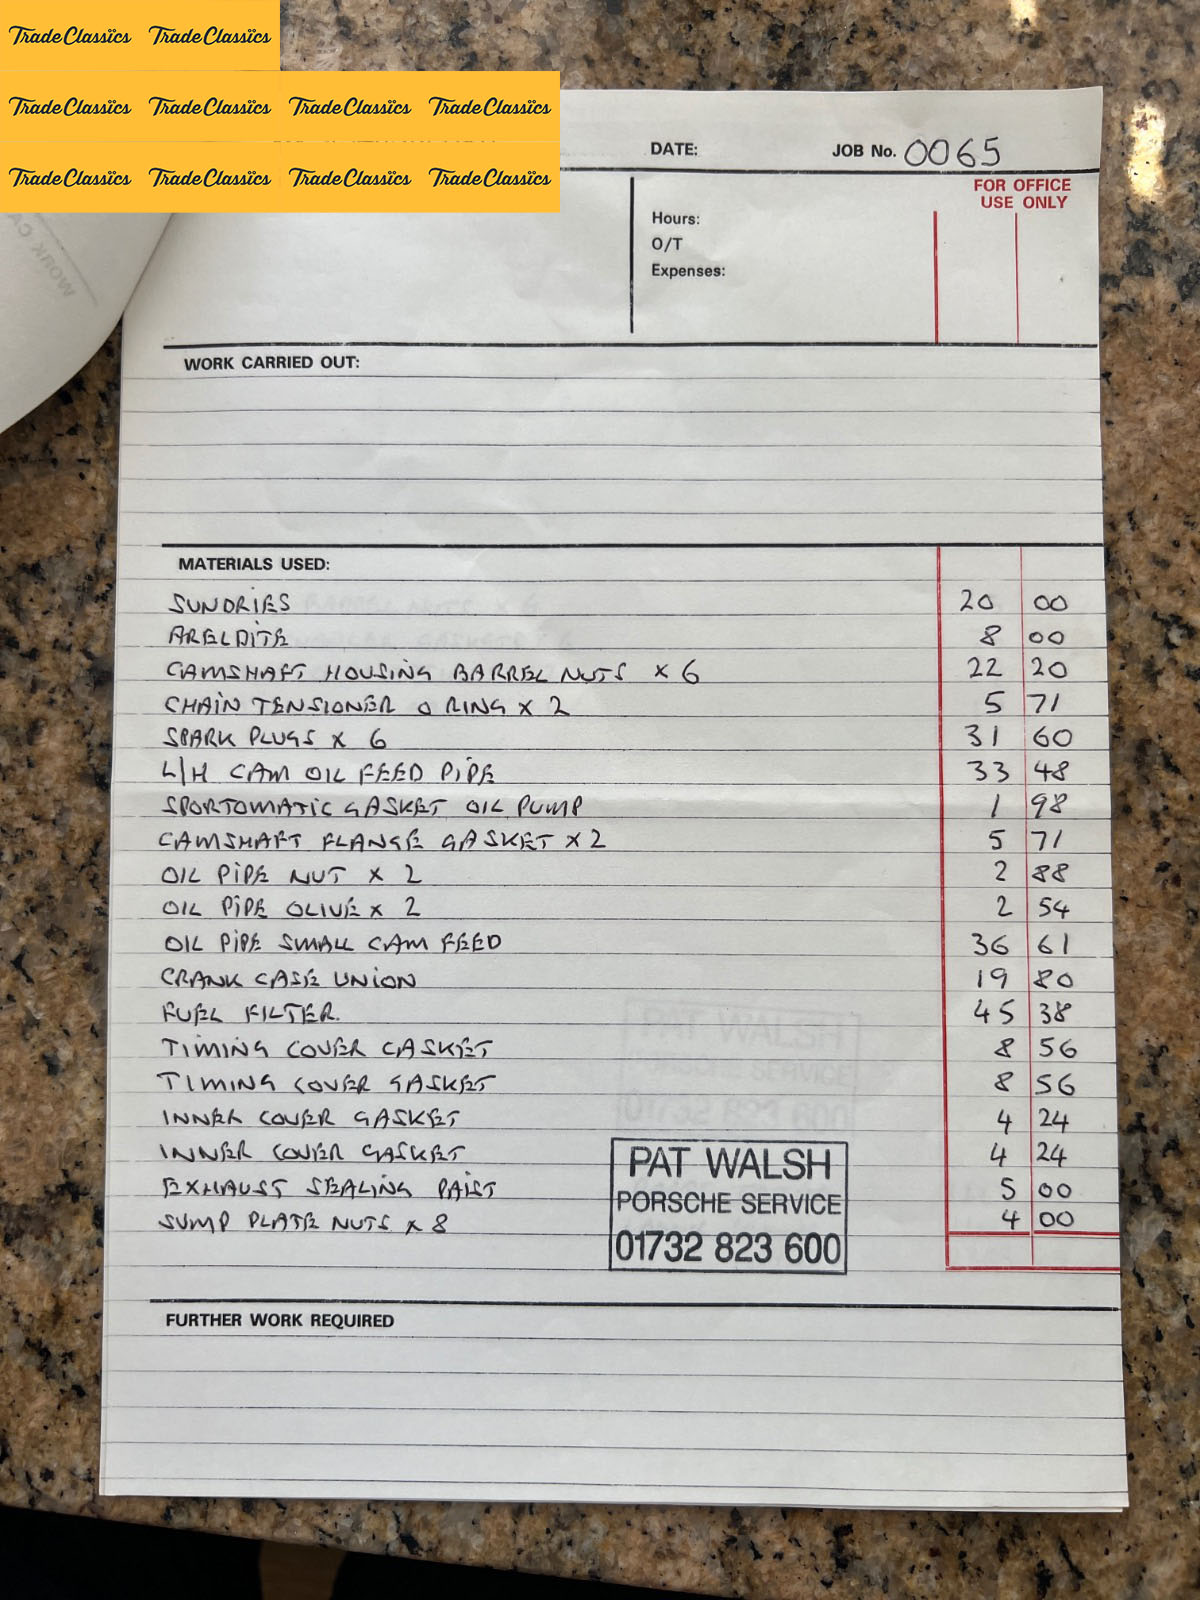 TradeClassics TradeClassics
TradeClassics TradeClassics TradeClassics TradeClassics
TradeClassics TradeClassics TradeClassics TradeClassics
DATE: JOB No. 0065
FOR OFFICE
USE ONLY
Hours:
O/T
Expenses:
WORK CARRIED OUT:
MATERIALS USED:
SUNDRIES 20 00
ARELDITE 8 00
CAMSHAFT HOUSING BARREL NUTS x 6 22 20
CHAIN TENSIONER O RING x 2 5 71
SPARK PLUGS x 6 31 60
L/H CAM OIL FEED PIPE 33 48
SPORTOMATIC GASKET OIL PUMP 1 98
CAMSHAFT FLANGE GASKET x 2 5 71
OIL PIPE NUT x 2 2 88
OIL PIPE OLIVE x 2 2 54
OIL PIPE SMALL CAM FEED 36 61
CRANK CASE UNION 19 80
FUEL FILTER. 45 38
TIMING COVER GASKET 8 56
TIMING COVER GASKET 8 56
INNER COVER GASKET 4 24
INNER COVER GASKET 4 24
EXHAUST SEALING PAIST 5 00
SUMP PLATE NUTS x 8 4 00
PAT WALSH
PORSCHE SERVICE
01732 823 600
FURTHER WORK REQUIRED